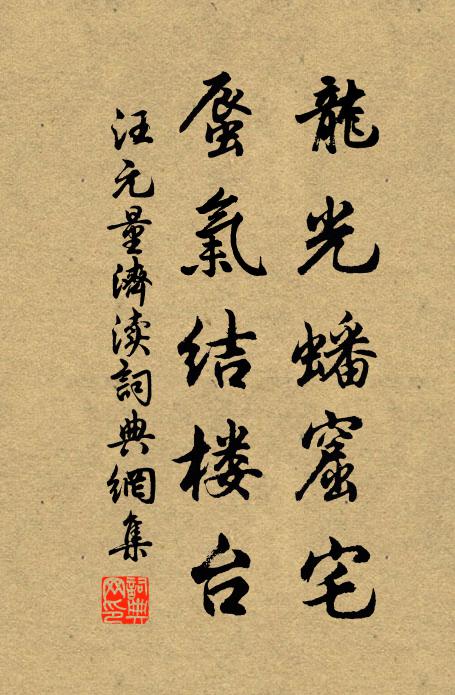 龍光蟠窟宅
蜃氣结楼台
汪元量濟渎詞典網集
詞典网印